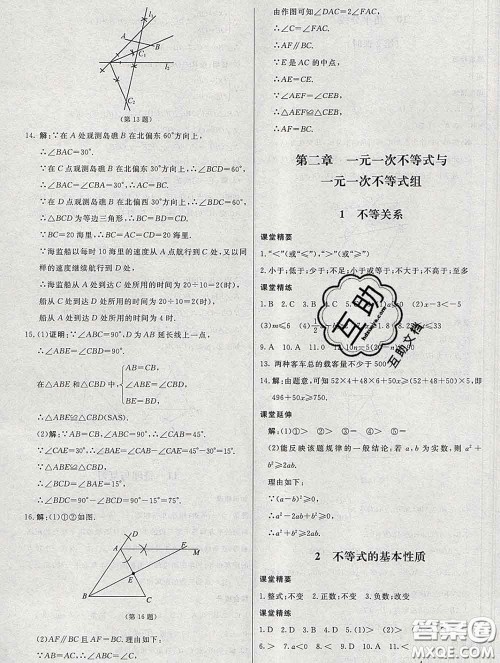 l₁
A
B
l₂
(第13题)
14. 解:∵在A处观测岛礁B在北偏东60°方向上,
∴∠BAC=30°.
∵在C点观测岛礁B在北偏东30°方向上,
∴∠BCD=60°,
∴∠BAC=∠CBA=30°,
∴AC=BC.
∵在D点观测岛礁B在北偏西30°方向上,
∴∠BDC=60°,∴∠BCD=60°,
∴△BCD为等边三角形,∴BC=CD.
∵BC=20海里,∴BC=AC=CD=20海里.
∵海监船以每时10海里的速度从A点航行到C处,又以同样的速度继续航行到D处,
∴船从A点到达C点所用的时间为20÷10=2(时),
船从C处到达D处所用的时间为20÷10=2(时).
船从A点到达D处所用的时间为4时.
15. (1)证明:∵∠ABC=90°,D为AB延长线上一点,
∴∠ABE=∠CBD=90°.
在△ABE和△CBD中,
AB=CB,
∠ABE=∠CBD,
BE=BD,
∴△ABE≌△CBD(SAS).
(2)解:∵AB=CB,∠ABC=90°,∴∠CAB=45°.
∵∠CAE=30°,∴∠BAE=∠CAB-∠CAE=15°.
∵△ABE≌△CBD,∴∠BCD=∠BAE=15°,
∴∠BDC=90°-∠BCD=90°-15°=75°.
16. 解:(1)①②如图.
A
F
M
E
B
C
(第16题)
(2)AF∥BC且AF=BC.理由如下:
由作图可知∠DAC=2∠FAC,
∴∠C=∠FAC.
∴AF∥BC.
∵E是AC的中点,
∴AE=CE.
∴AF=BC.
第二章 一元一次不等式与
一元一次不等式组
1 不等关系
课堂精要
1. "<"(或"≤"),">"(或"≥")
2. 小于;低于;少于;不足;小于或等于;不大于;不高于;至多
课堂精练
1. B 2. C 3. B
(2)x-3<-5
(3)m≤6
9. A
13. 两种客车总的载客量不少于500
14. 解:由题意,可知52×4+48×6≤(52+48+50)×5,即
496+50x≥750.
课堂延伸
解:(1)① > ② > ③ = ④ > ⑤ =
(2)能反映该题规律的一般结论:若a,b为实数,则a²+b²≥2ab.
理由如下:
∵(a-b)²≥0,
∴a²-2ab+b²≥0,
∴a²+b²≥2ab.
2 不等式的基本性质
课堂精要
1. 整式;不变 2. 正数;不变 3. 负数;改变
课堂精练
1. B 2. A 3. D 4. B 5. (1)> (2)< (3)<
互助
互助文档
答案圈
MXQE.COM